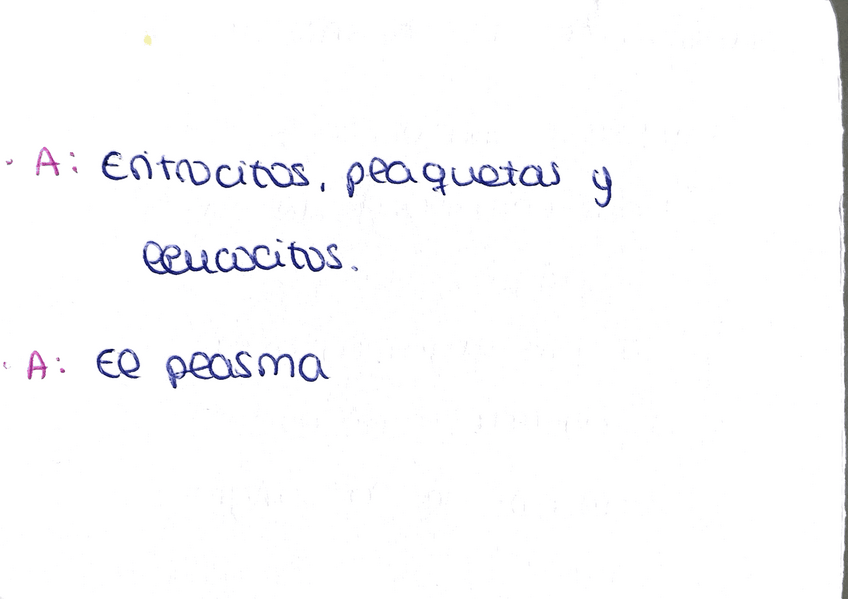 · A: Eritrocitos, plaquetas y
leucocitos.
· A: El plasma